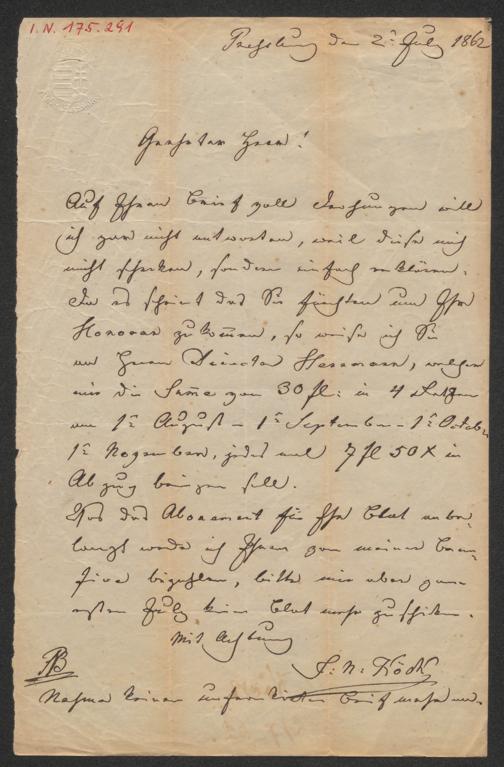 I. N. 175.291
Preßburg den 2t July 1862
Geehrter Herr!
Auf Ihren Brief voll Drohungen will
ich gar nicht antworten, weil diese mich
nicht schrecken, sondern einfach erklären.
Da es scheint das Sie fürchten um Ihr
Honorar zu kommen, so weise ich Sie
an Herrn Director Herrmann, welcher
mir die Summe von 30 fl: in 4
am 1t August – 1t September – 1t October
1t November, jedes mal 7 fl 50 X in
Abzug bringen soll.
Was das Abonement für Ihr Blat anbe-
langt werde ich Ihnen von meiner
bezahlen, bitte mir aber vom
ersten July kein Blat mehr zu schicken.
Mit Achtung
NB
Nehme keinen unfrankirten Brief mehr an.